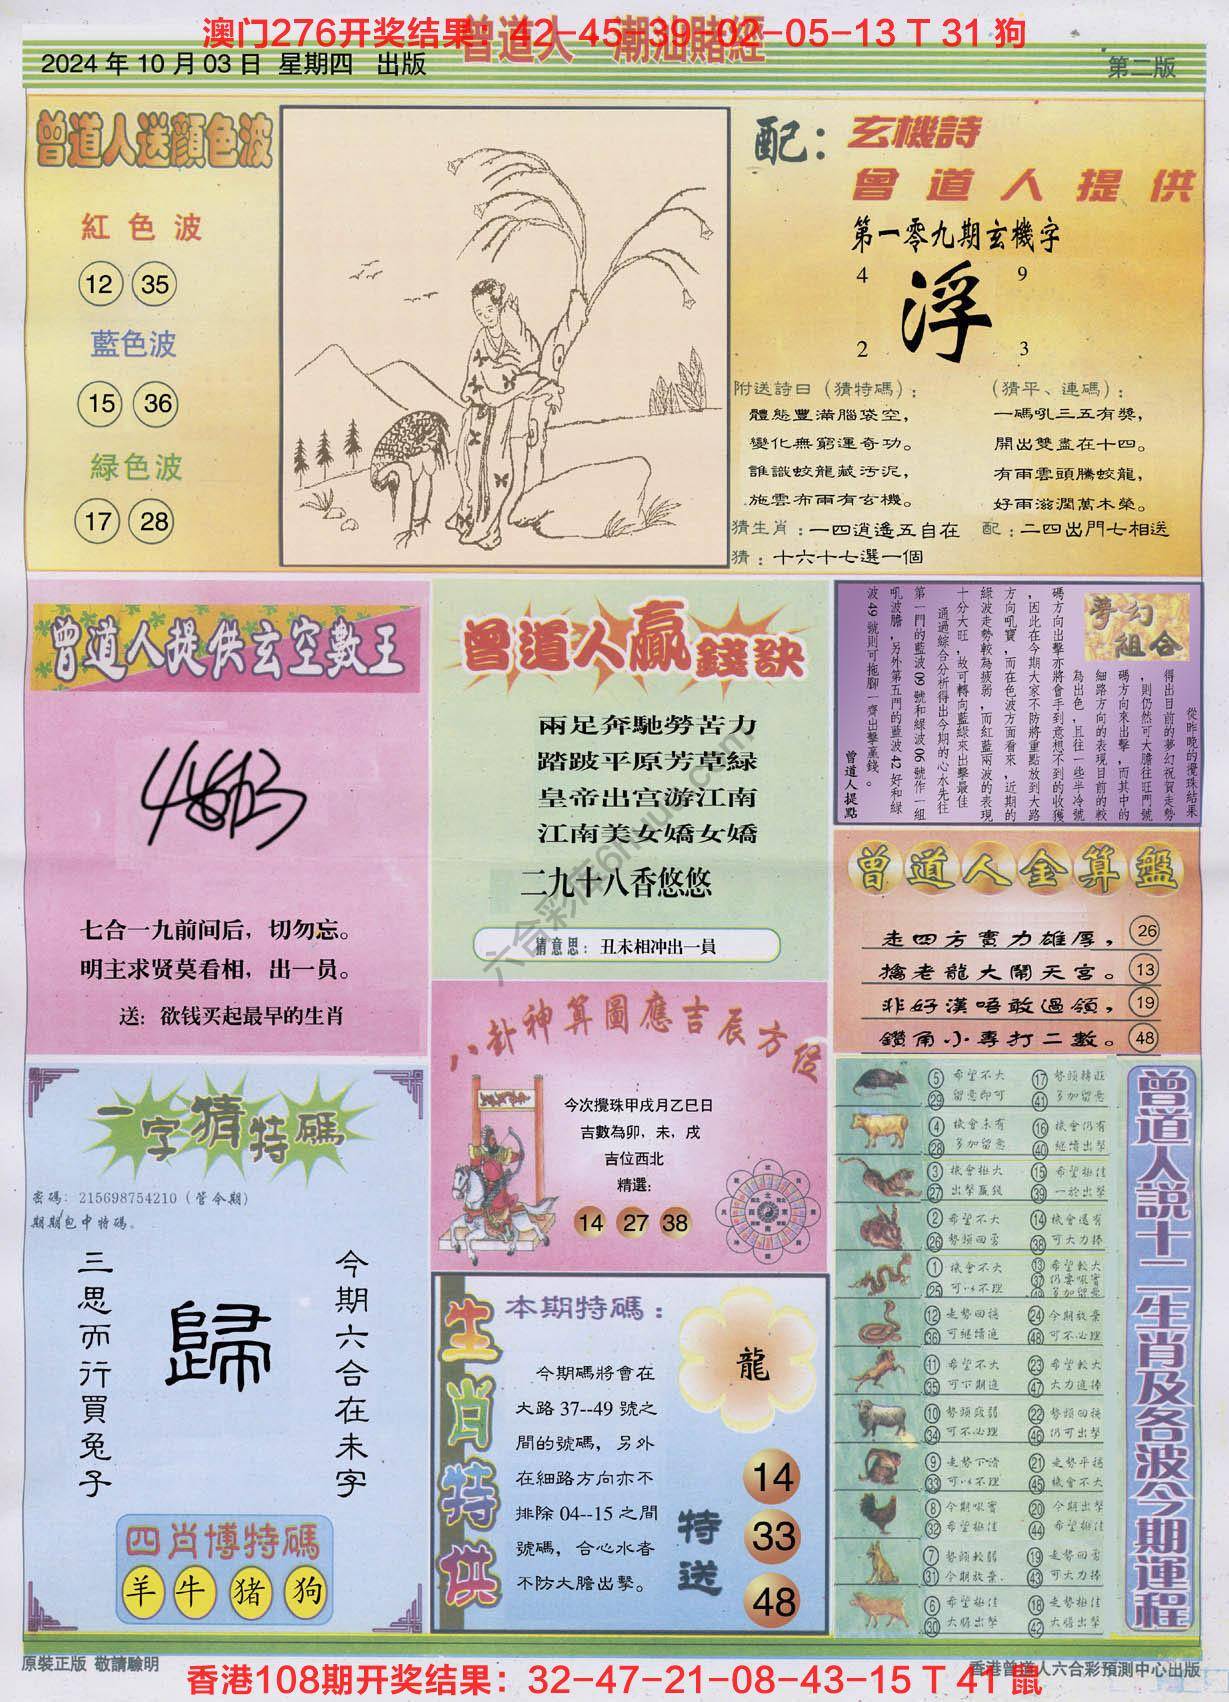 澳门276开奖结果：42-45-39-02-05-13 T 31 狗
曾道人 潮汕賭經
2024 年 10 月 03 日 星期四 出版
第二版
曾道人送顔色波
紅色波
12 35
藍色波
15 36
緑色波
17 28
配：
玄機詩
曾道人提供
第一零九期玄機字
4 9
浮
2 3
附送詩曰（猜特碼）：
體態豐滿腦袋空，
變化無窮運奇功。
誰識蛟龍藏汚泥，
施雲布雨有玄機。
（猜平、連碼）：
一碼吼三五有獎，
開出雙盡在十四。
有雨雲頭騰蛟龍，
好雨滋潤萬木榮。
猜生肖：一四逍遙五自在
配：二四出門七相送
猜：十六十七選一個
曾道人提供玄空數王
七合一九前间后，切勿忘。
明主求贤莫看相，出一员。
送：欲钱买起最早的生肖
曾道人贏錢訣
兩足奔馳勞苦力
踏跛平原芳草緑
皇帝出宫游江南
江南美女嬌女嬌
二九十八香悠悠
猜意思：丑未相冲出一員
夢幻組合
從昨晚的攪珠結果
得出目前的夢幻祝賀走勢
，則仍然可大膽往旺門號
碼方向來出擊，而其中的
細路方向的表現目前的較
為出色，且往一些半冷號
碼方向出擊亦將會手到意想不到的收獲
，因此在今期大家不防將重點放到大路
方向吼寶，而在色波方面看來，近期的
緑波走勢較為疲弱，而紅藍兩波的表現
十分大旺，故可轉向藍緑來出擊最佳
通過綜合分析得出今期的心水先往
第一門的藍波09號和緑波06號作一組
吼波膽，另外第五門的藍波42好和緑
波49號則可拖腳一齊出擊贏錢。
曾道人提點
曾道人金算盤
走四方實力雄厚， 26
擒老龍大鬧天宮。 13
非好漢唔敢過領， 19
鑽角小專打二數。 48
八卦神算圖應吉辰方位
今次攪珠甲戌月乙巳日
吉數為卯，未，戌
吉位西北
精選：
14 27 38
一字猜特碼
密碼：215698754210（管今期）
期期包中特碼。
三思而行買兔子
歸
今期六合在未字
四肖博特碼
羊 牛 猪 狗
生肖特供
本期特碼：
龍
今期碼將會在
大路 37--49 號之
間的號碼，另外
在細路方向亦不
排除 04--15 之間
號碼，合心水者
不防大膽出擊。
特送
14
33
48
曾道人説十二生肖及各波今期運程
5 希望不大 17 勢頭轉旺
29 留意即可 41 多加留意
4 機會未有 16 機會仍有
28 多加留意 40 繼續出擊
3 機會推大 15 希望推佳
27 出擊贏錢 39 一於出擊
2 希望不大 14 機會還有
26 勢頭回勇 38 可大力捧
1 機會不大 13 希望較大
25 可以不理 37 仍要吸實
12 走勢回穩 24 今期放棄
36 可繼續追 48 可不必理
11 希望不大 23 希望較大
35 可下期追 47 大力追捧
10 勢頭疲弱 22 勢頭回穩
34 可不必理 46 仍可出擊
9 走勢下滑 21 走勢平穩
33 可以不理 45 機會不大
8 今期吸實 20 今期出擊
32 希望推佳 44 希望推佳
7 勢頭較弱 19 走勢回勇
31 今期放棄. 43 可大力捧
6 希望推佳 18 走勢推佳
30 大膽出擊 42 大膽出擊
六合彩库6huck.com
原裝正版 敬請驗明
香港曾道人六合彩預測中心出版
香港108期开奖结果：32-47-21-08-43-15 T 41 鼠